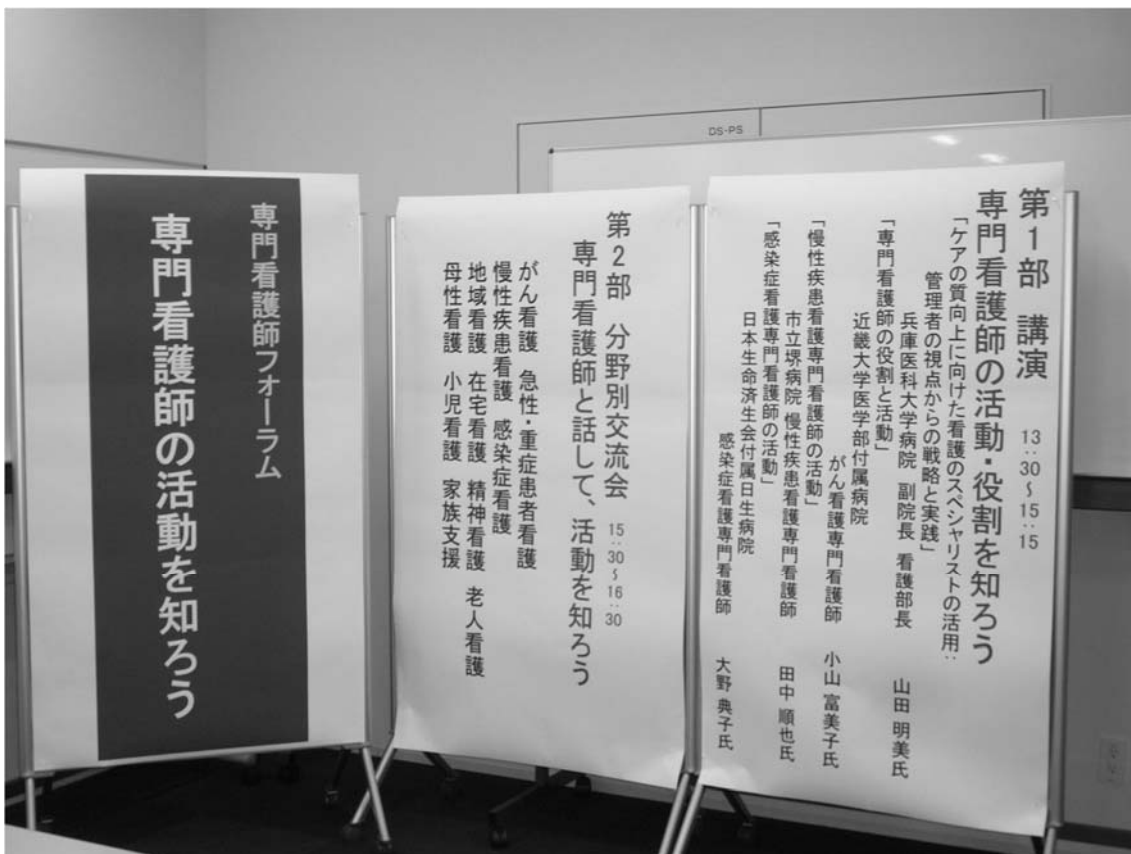 第1部 講演 13:30～15:15
専門看護師の活動・役割を知ろう
「ケアの質向上に向けた看護のスペシャリストの活用：
管理者の視点からの戦略と実践」
兵庫医科大学病院 副院長 看護部長 山田 明美氏
「専門看護師の役割と活動」
近畿大学医学部付属病院
がん看護専門看護師 小山 富美子氏
「慢性疾患看護専門看護師の活動」
市立堺病院 慢性疾患看護専門看護師 田中 順也氏
「感染症看護専門看護師の活動」
日本生命済生会付属日生病院
感染症看護専門看護師 大野 典子氏
第2部 分野別交流会 15:30～16:30
専門看護師と話して、活動を知ろう
がん看護 急性・重症患者看護
慢性疾患看護 感染症看護
地域看護 在宅看護 精神看護 老人看護
母性看護 小児看護 家族支援
専門看護師フォーラム
専門看護師の活動を知ろう
DS-PS